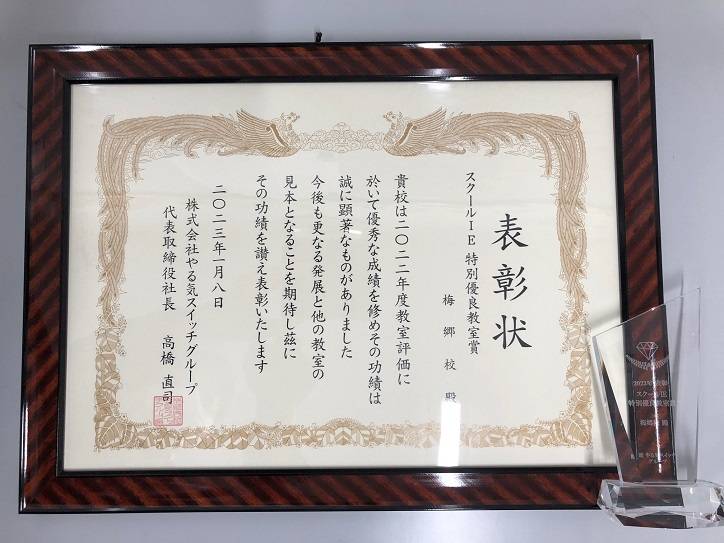 表彰状
スクールIE 特別優良教室賞
梅郷校 殿
貴校は二〇二二年度教室評価に
於いて優秀な成績を修めその功績は
誠に顕著なものがありました
今後も更なる発展と他の教室の
見本となることを期待し茲に
その功績を讃え表彰いたします
二〇二三年一月八日
株式会社やる気スイッチグループ
代表取締役社長 高橋直司
スクールIE
特別優良教室賞
梅郷校 殿